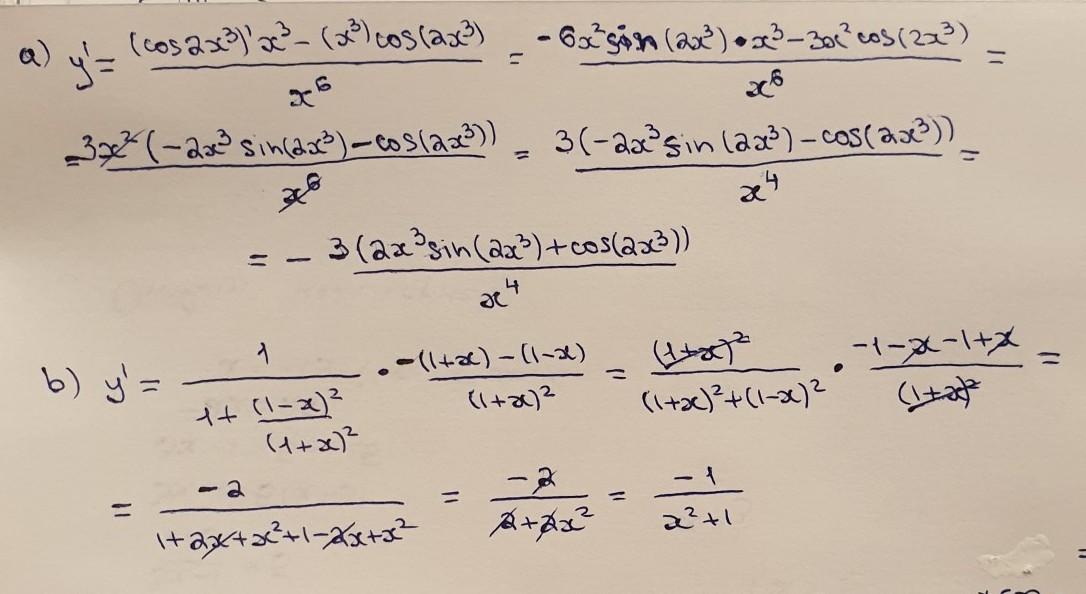 a) y' = ((cos2x³)'x³ - (x³)'cos(2x³))/x⁶ = (-6x²sin(2x³)•x³-3x²cos(2x³))/x⁶ =
= 3x²(-2x³ sin(2x³)-cos(2x³))/x⁶ = 3(-2x³ sin(2x³)-cos(2x³))/x⁴ =
= - 3(2x³sin(2x³)+cos(2x³))/x⁴
b) y' = 1/(1+(1-x)²/(1+x)²) • (-(1+x)-(1-x))/(1+x)² = (1+x)²/((1+x)²+(1-x)²) • (-1-x-1+x)/(1+x)² =
= -2/(1+2x+x²+1-2x+x²) = -2/(2+2x²) = -1/(x²+1)